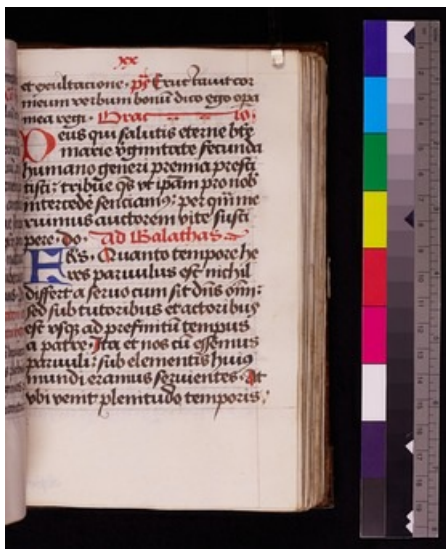 xx
et exultacione · ps Eructauit cor
meum verbum bonū dico ego opa
mea regi · Orac io.
Deus qui salutis eterne bte
marie vgīnitate fecunda
humano generi premia presti
tisti: tribue qs vt ipam pro nob
intercede senciamꝯ: per quē me
ruimus auctorem vite susci
pere · do · ad Galathas
Frs. Quanto tempore he
res paruulus est nichil
differt a seruo cum sit dn̄s om̄:
sed sub tutoribus et actoribus
est vsqꝫ ad prefinitū tempus
a patre · Ita et nos cū essemus
paruuli: sub elementis huiꝯ
mundi eramus seruientes · At
vbi venit plenitudo temporis.